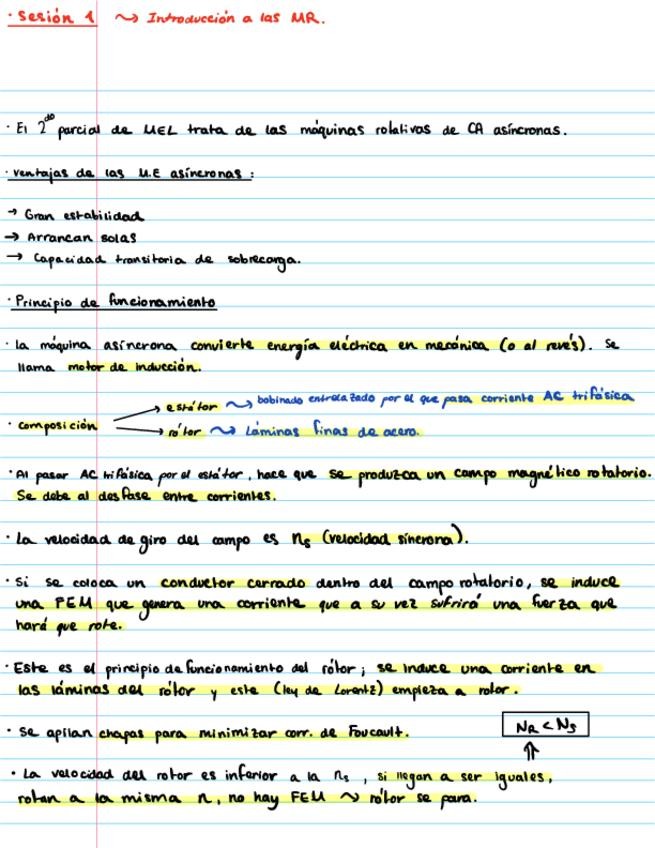 · Sesión 1 ⤳ Introducción a las MR.
· El 2do parcial de MEL trata de las máquinas rotativas de CA asíncronas.
· Ventajas de las M.E asíncronas :
→ Gran estabilidad
→ Arrancan solas
→ Capacidad transitoria de sobrecarga.
· Principio de funcionamiento
· La máquina asíncrona convierte energía eléctrica en mecánica (o al revés). Se
llama motor de inducción.
→ estátor ⤳ bobinado entrelazado por el que pasa corriente AC trifásica
· Composición
→ rótor ⤳ Láminas finas de acero.
· Al pasar AC trifásica por el estátor, hace que se produzca un campo magnético rotatorio.
Se debe al desfase entre corrientes.
· La velocidad de giro del campo es ns (velocidad síncrona).
· Si se coloca un conductor cerrado dentro del campo rotatorio, se induce
una FEM que genera una corriente que a su vez sufrirá una fuerza que
hará que rote.
· Este es el principio de funcionamiento del rótor; se induce una corriente en
las láminas del rótor y este (ley de Lorentz) empieza a rotar.
· Se apilan chapas para minimizar corr. de Foucault.
NR < NS
⇑
· La velocidad del rotor es inferior a la ns, si llegan a ser iguales,
rotan a la misma n, no hay FEM ⤳ rótor se para.